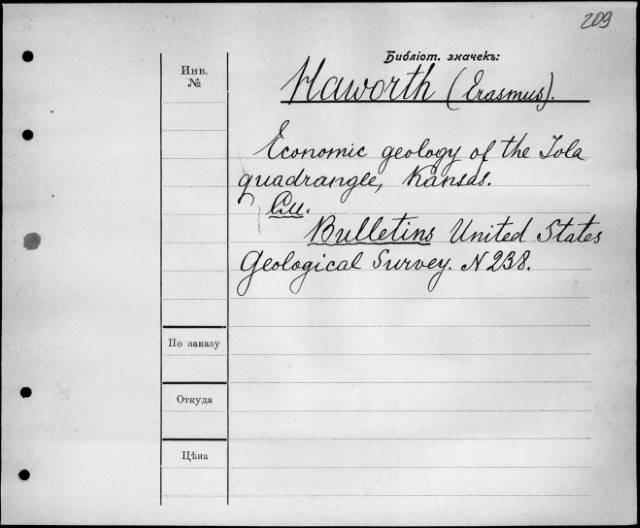 209
Библіот. значекъ:
Инв.
№
Haworth (Erasmus).
Economic geology of the Iola
quadrangle, Kansas.
См.
Bulletins United States
Geological Survey. N 238.
По заказу
Откуда
Цѣна